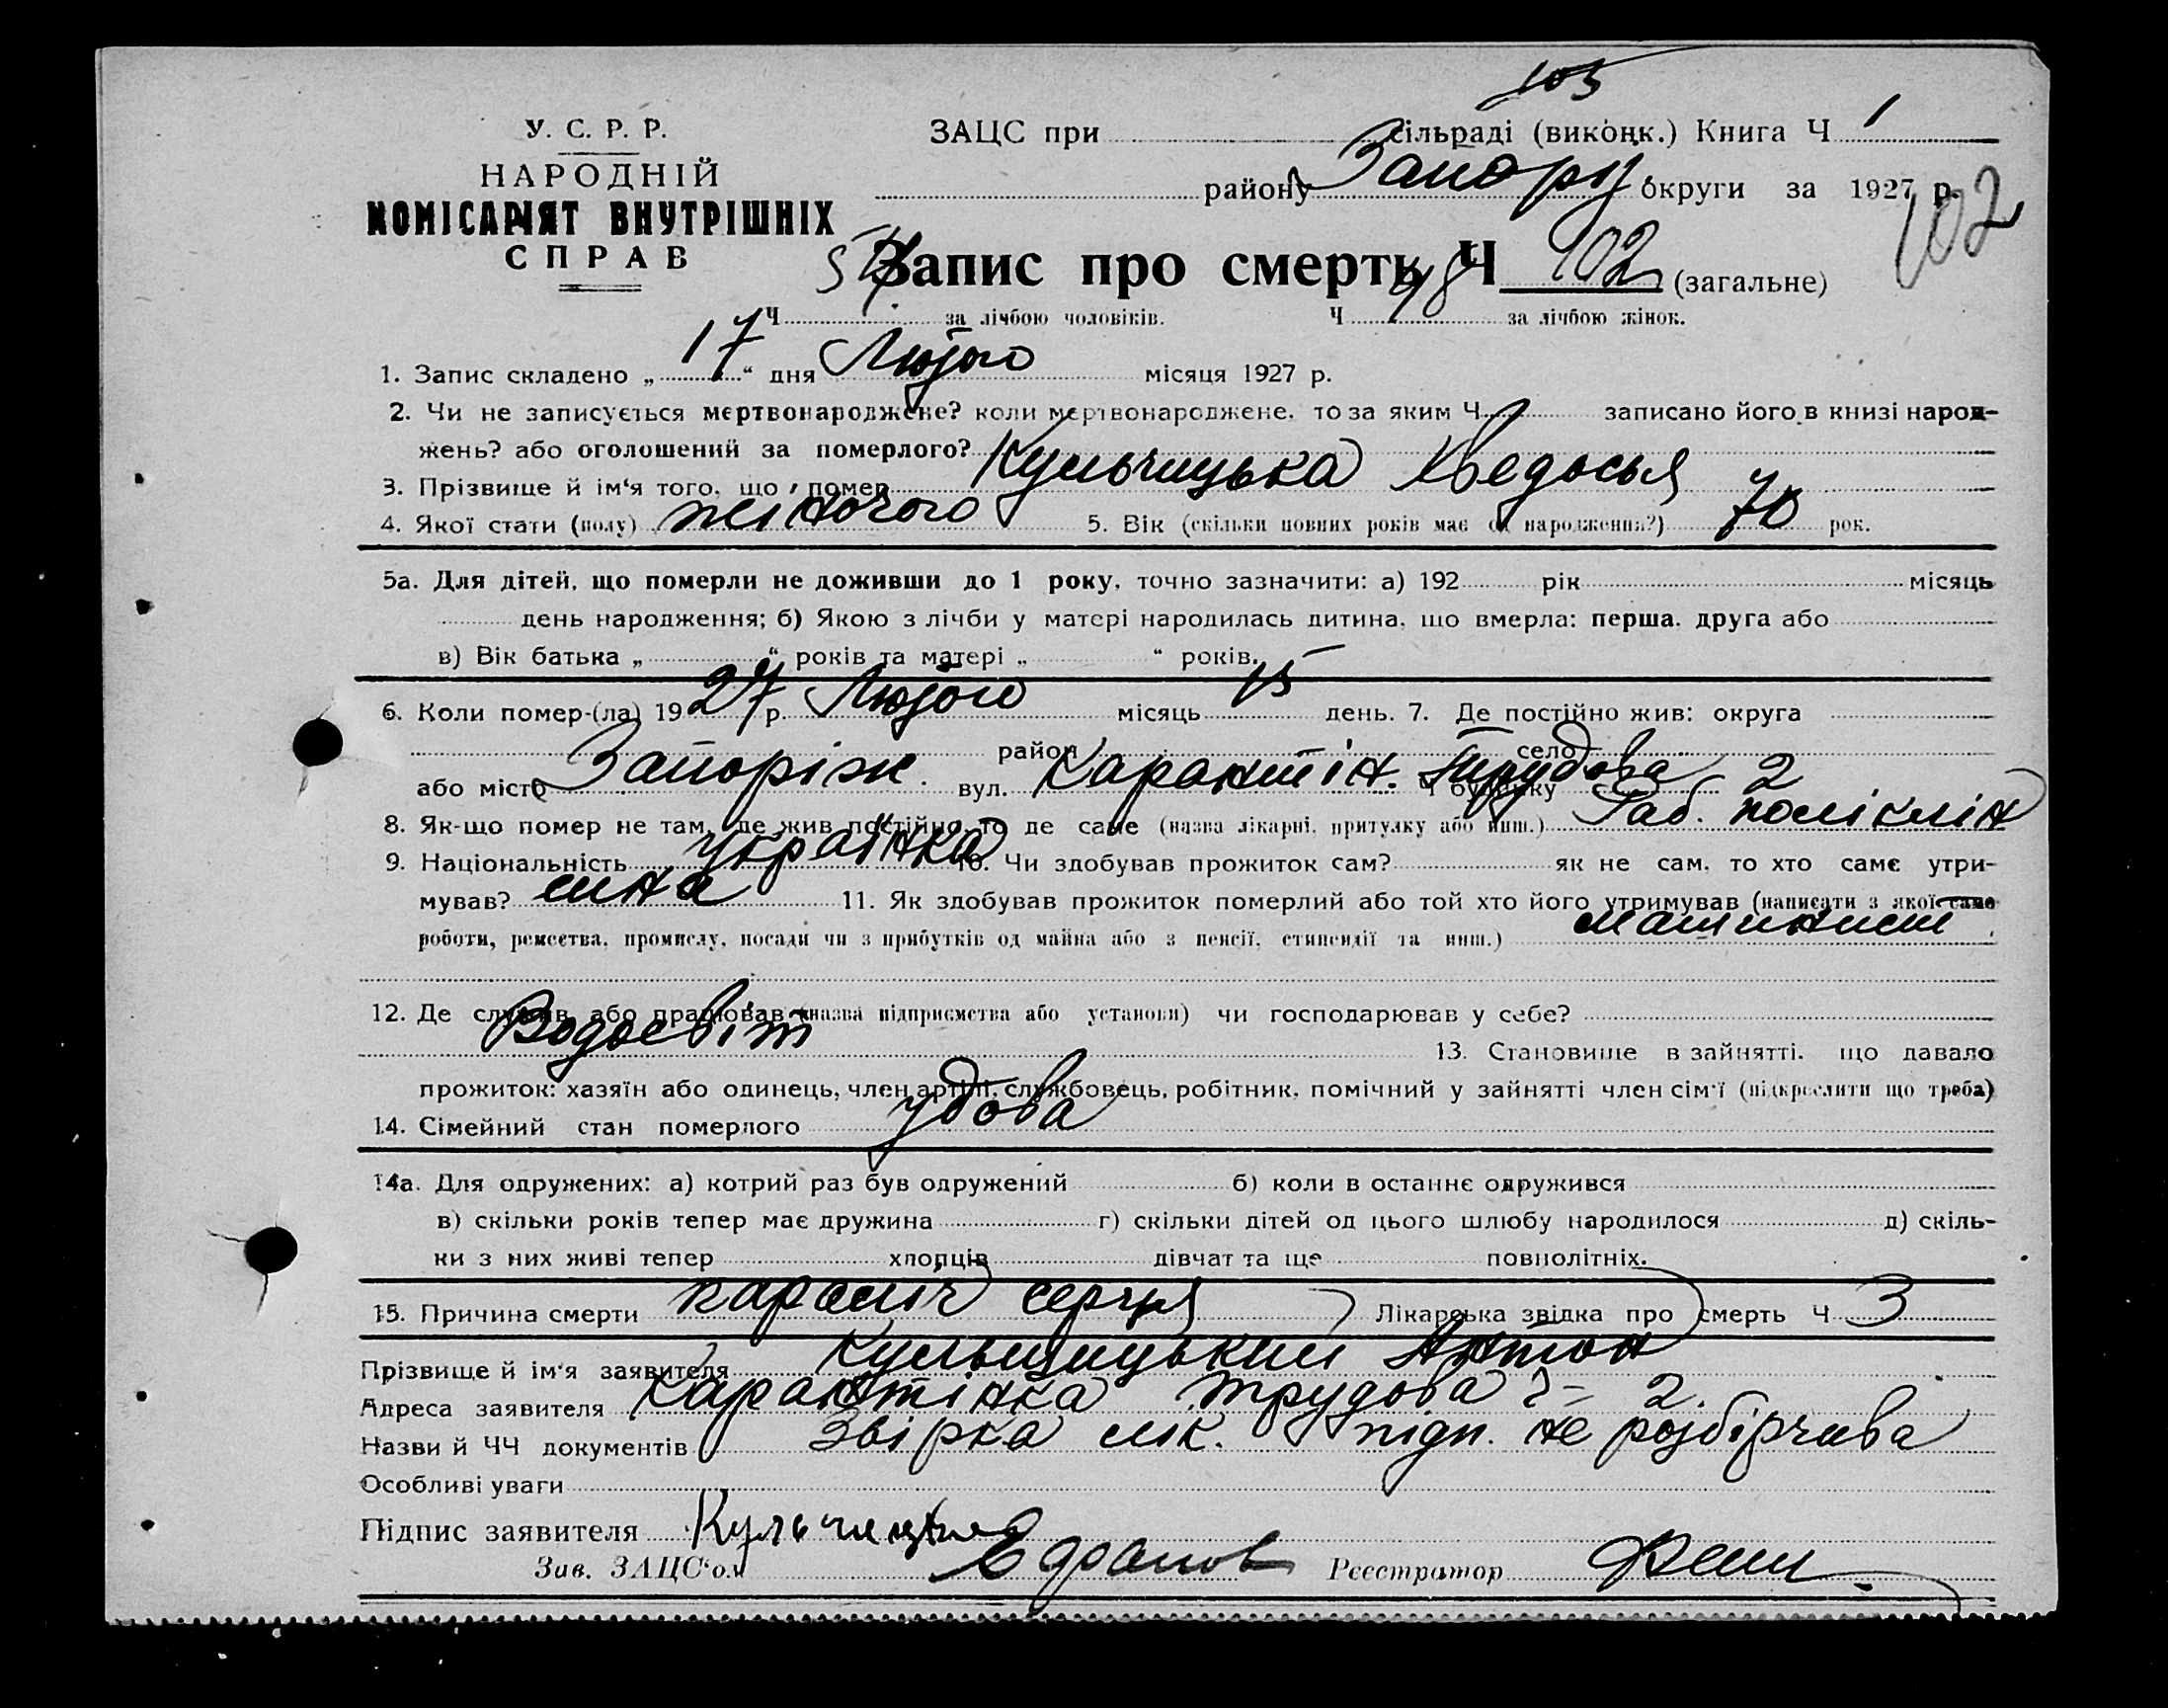 105
У. С. Р. Р.
ЗАЦС при сільраді (виконк.) Книга Ч 1
НАРОДНІЙ
району Запоріз округи за 1927 р.
КОМІСАРІЯТ ВНУТРІШНІХ
СПРАВ
102
Запис про смерть Ч 102 (загальне)
Ч 54 за лічбою чоловіків. Ч 48 за лічбою жінок.
1. Запис складено „ 17 “ дня Лютого місяця 1927 р.
2. Чи не записується мертвонароджене? коли мертвонароджене, то за яким Ч записано його в книзі народ-
жень? або оголошений за померлого?
3. Прізвище й ім‘я того, що помер Кульчицька Хведосья
4. Якої стати (полу) жіночого 5. Вік (скільки повних років має од народження?) 70 рок.
5а. Для дітей, що померли не доживши до 1 року, точно зазначити: а) 192 рік місяць
день народження; б) Якою з лічби у матері народилась дитина, що вмерла: перша, друга або
в) Вік батька „ “ років та матері „ “ років.
6. Коли помер-(ла) 1927 р. Лютого місяць 15 день. 7. Де постійно жив: округа
район село
або місто Запоріж. вул. Карантін. Трудова Ч будинку 2
8. Як-що помер не там, де жив постійно, то де саме (назва лікарні, притулку або инш.) Раб. поліклін
9. Національність Українка 10. Чи здобував прожиток сам? як не сам, то хто саме утри-
мував? сина 11. Як здобував прожиток померлий або той хто його утримував (написати з якої саме
роботи, ремества, промислу, посади чи з прибутків од майна або з пенсії, стипендії та инш.) машинист
12. Де служив або працював (назва підприємства або установи) чи господарював у себе?
Водосвіт
13. Становище в зайнятті, що давало
прожиток: хазяїн або одинець, член артілі, службовець, робітник, помічний у зайнятті член сім‘ї (підкреслити що треба)
14. Сімейний стан померлого удова
14а. Для одружених: а) котрий раз був одружений б) коли в останнє одружився
в) скільки років тепер має дружина г) скільки дітей од цього шлюбу народилося д) скіль-
ки з них живі тепер хлопців дівчат та ще повнолітніх.
15. Причина смерти параліч серця Лікарська звідка про смерть Ч 3
Прізвище й ім‘я заявителя Кульчицький Антон
Адреса заявителя Карантінка Трудова Ч- 2.
Назви й ЧЧ документів Звірка лік. підп. не розбірчива
Особливі уваги
Підпис заявителя
Зав. ЗАЦС‘ом Реєстратор